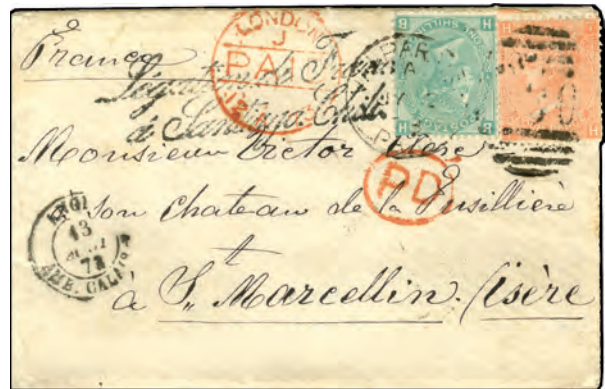 France
LONDON
J
PAID
Légation de France
à Santiago Chili
ONE SHILLING
H B
B H
Monsieur Victor
PD
son chateau de la Fusillière
ANGL
13
71
AMB. CALAIS
à St. Marcellin. Isère